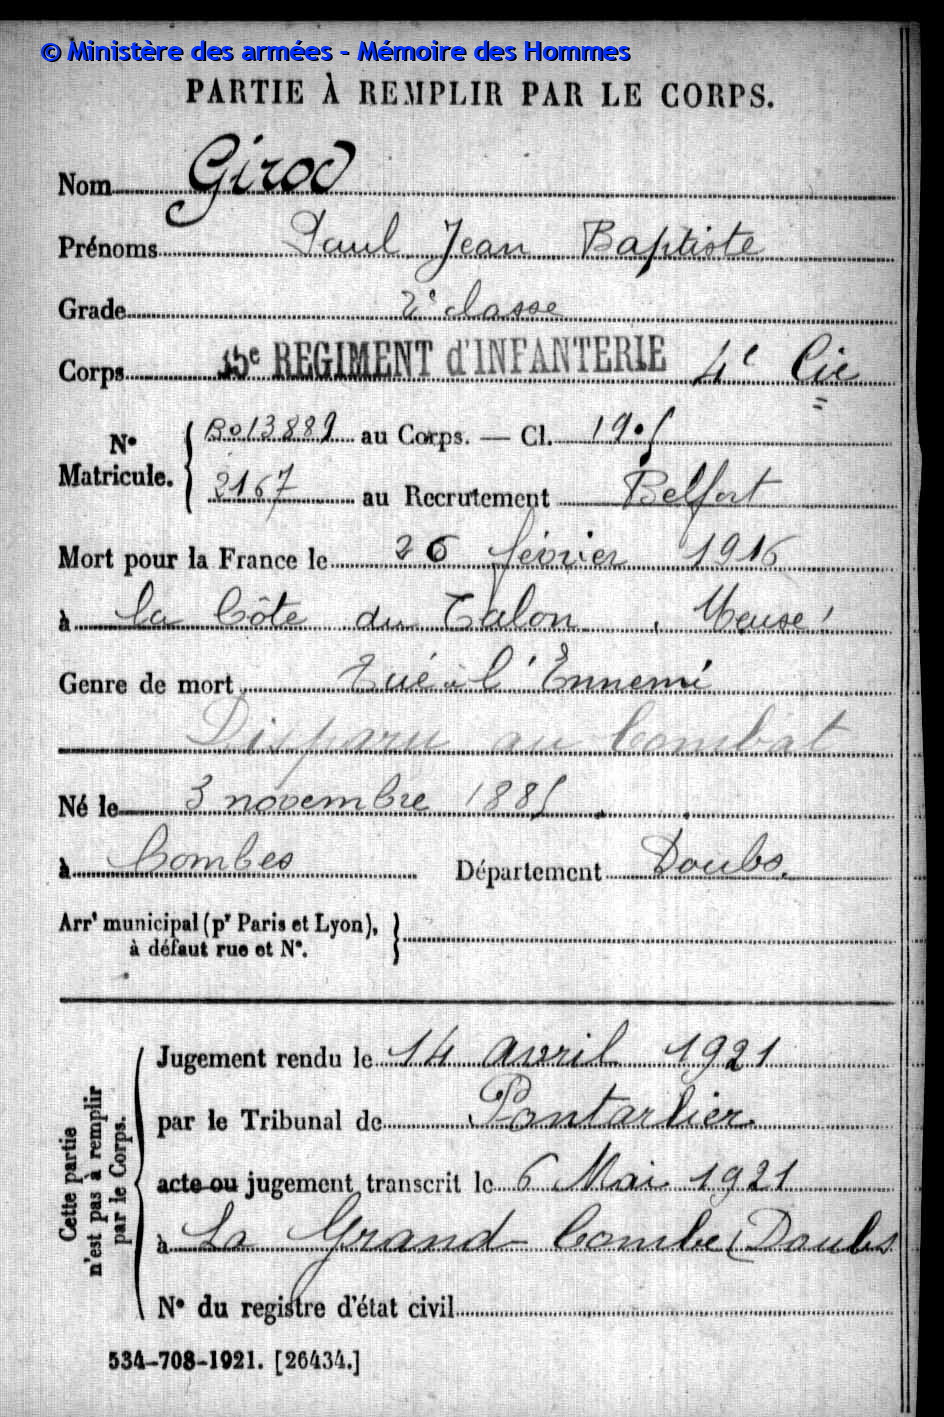 © Ministère des armées - Mémoire des Hommes
PARTIE À REMPLIR PAR LE CORPS.
Nom Girod
Prénoms Paul Jean Baptiste
Grade 2e classe
Corps 35e REGIMENT d'INFANTERIE 4e Cie
N° Matricule. { Bo13889 au Corps. — Cl. 1905
2167 au Recrutement Belfort
Mort pour la France le 26 février 1916
à la Côte du Talon, Meuse
Genre de mort Tué à l'Ennemi
Disparu au Combat
Né le 3 novembre 1885
à Combes Département Doubs.
Arrt municipal (pr Paris et Lyon),
à défaut rue et N°.
Cette partie
n'est pas à remplir
par le Corps.
Jugement rendu le 14 avril 1921
par le Tribunal de Pontarlier.
acte ou jugement transcrit le 6 Mai 1921
à La Grand Combe (Doubs
N° du registre d'état civil
534-708-1921. [26434.]